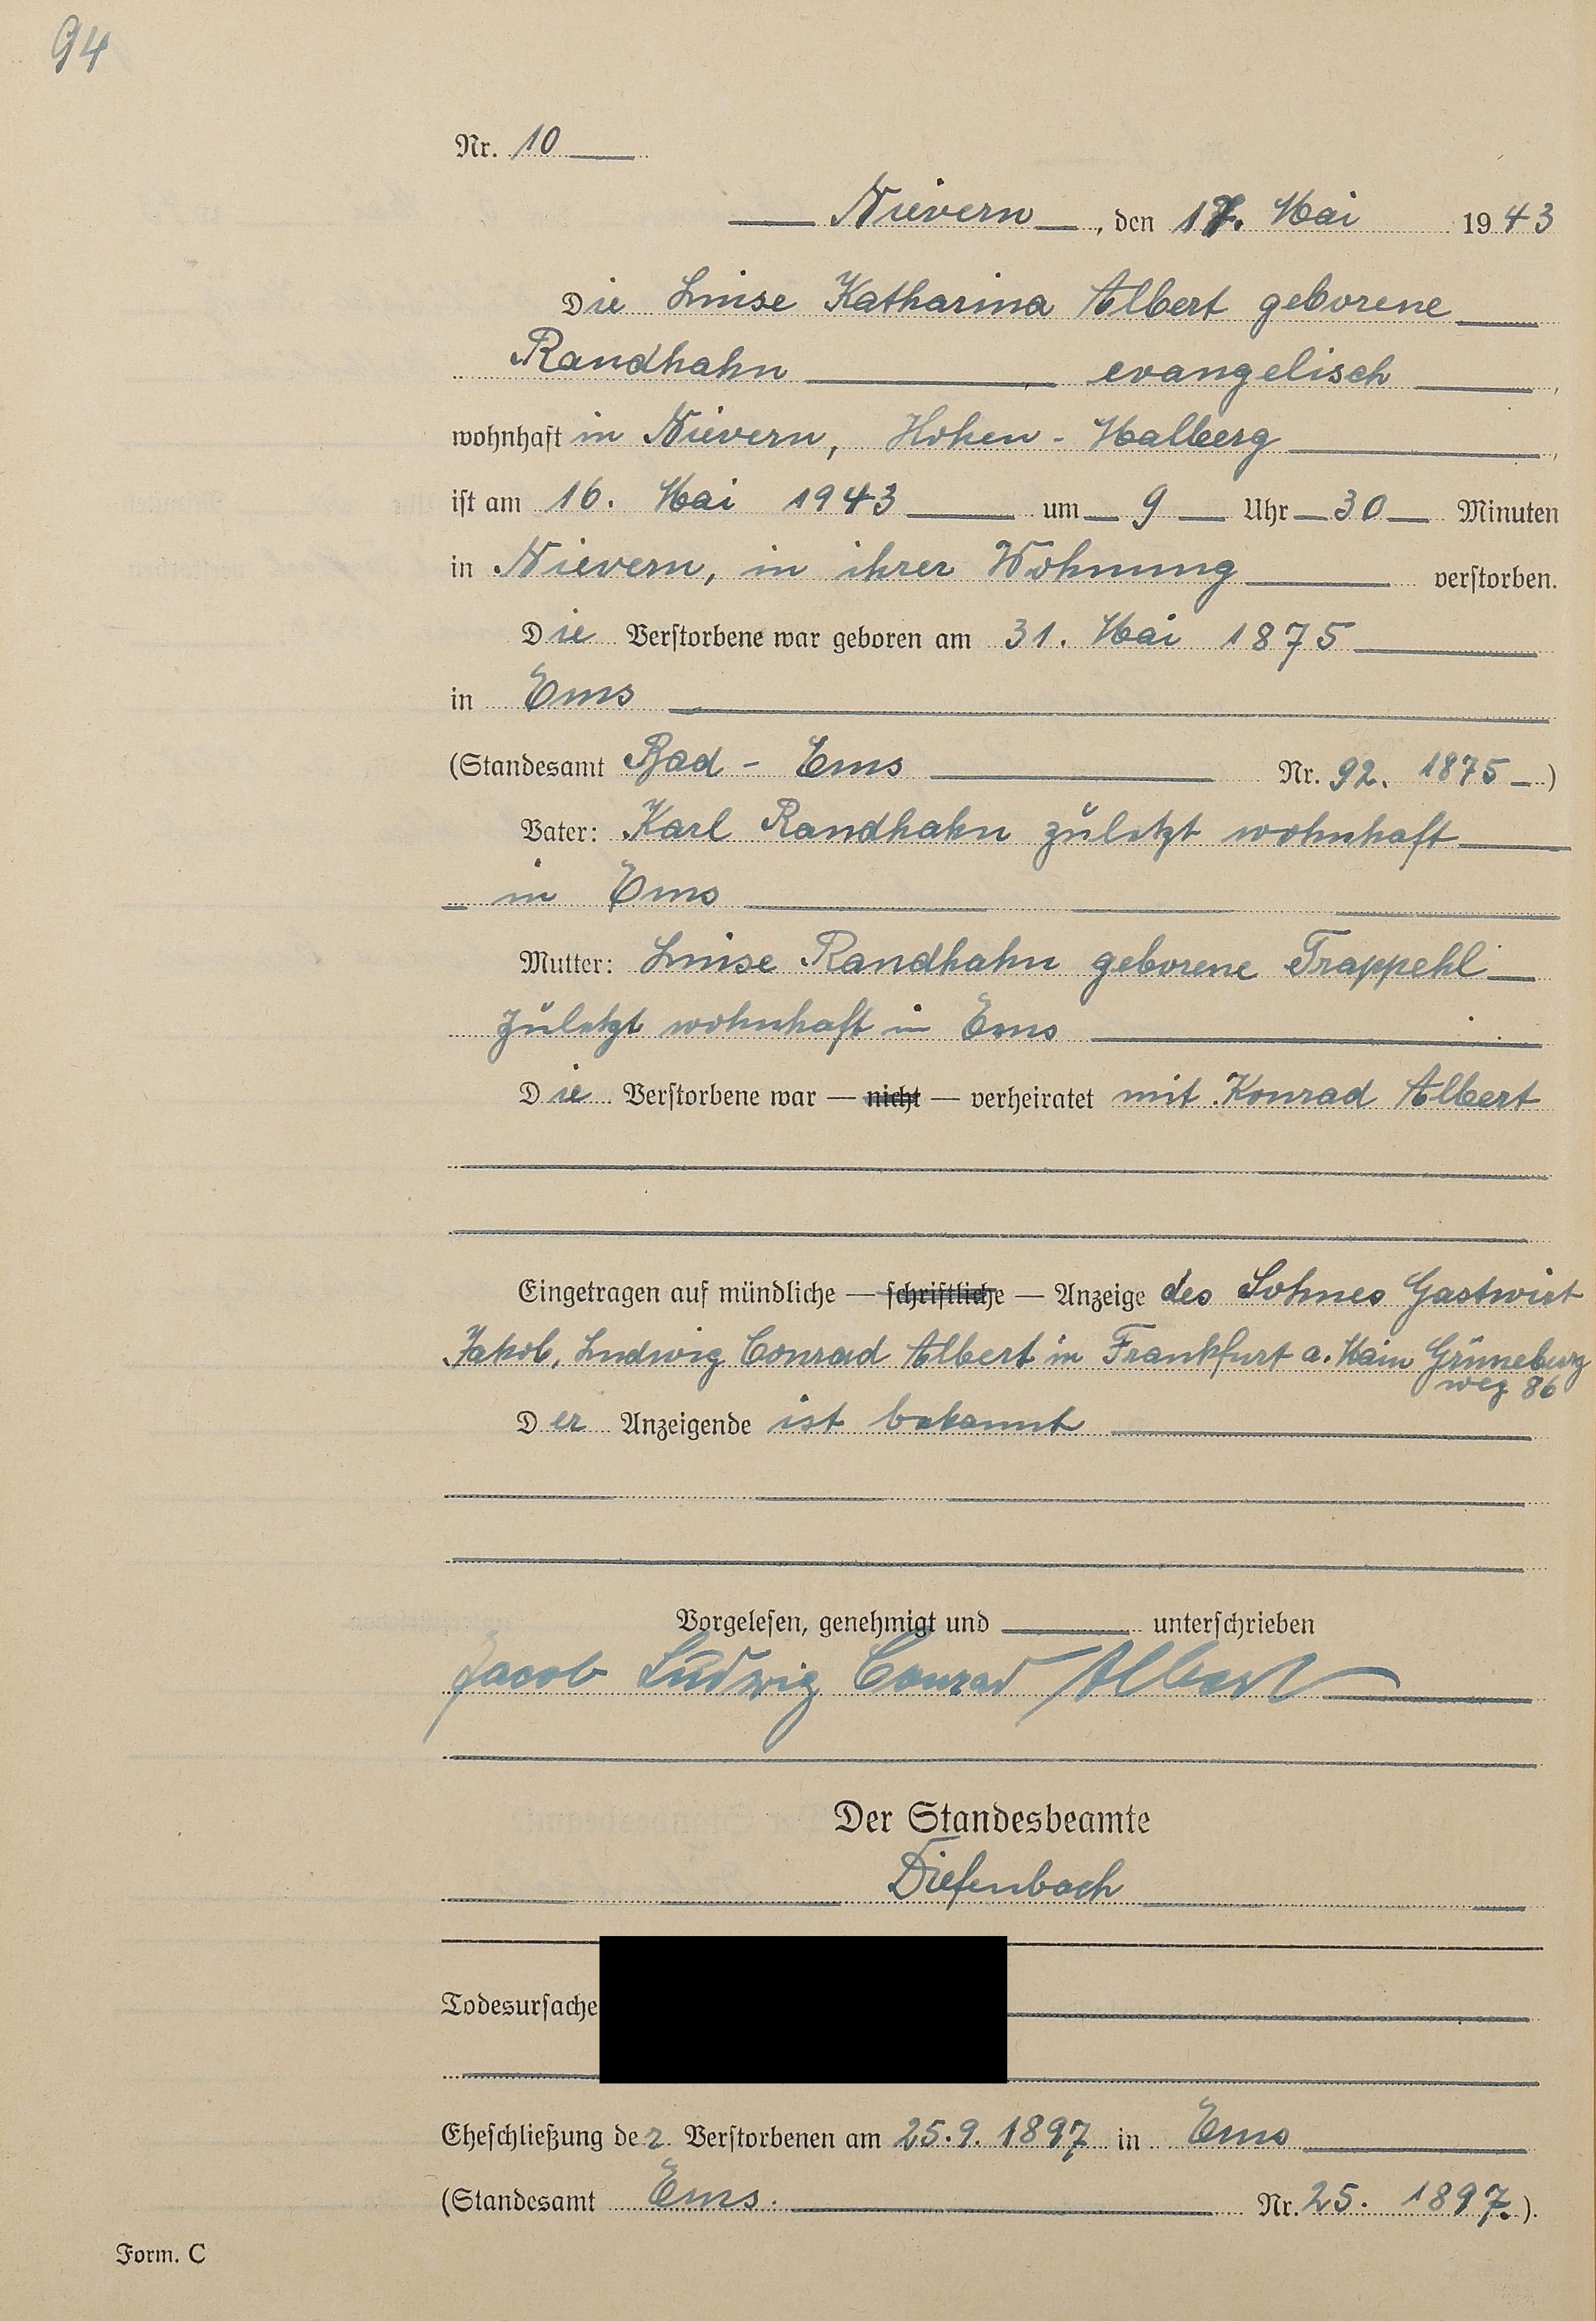 94
Nr. 10
Nievern, den 17. Mai 1943
Die Luise Katharina Albert geborene
Randhahn evangelisch,
wohnhaft in Nievern, Hohen-Malberg,
ist am 16. Mai 1943 um 9 Uhr 30 Minuten
in Nievern, in ihrer Wohnung verstorben.
Die Verstorbene war geboren am 31. Mai 1875
in Ems
(Standesamt Bad-Ems Nr. 92. 1875)
Vater: Karl Randhahn zuletzt wohnhaft
in Ems
Mutter: Luise Randhahn geborene Trappehl
zuletzt wohnhaft in Ems
Die Verstorbene war — nicht — verheiratet mit Konrad Albert
Eingetragen auf mündliche — schriftliche — Anzeige des Sohnes Gastwirt
Jakob, Ludwig Conrad Albert in Frankfurt a. Main Grüneburg
weg 86
Der Anzeigende ist bekannt
Vorgelesen, genehmigt und unterschrieben
Jacob Ludwig Conrad Albert
Der Standesbeamte
Diefenbach
Todesursache
Eheschließung der Verstorbenen am 25.9.1897 in Ems
(Standesamt Ems. Nr. 25. 1897.).
Form. C